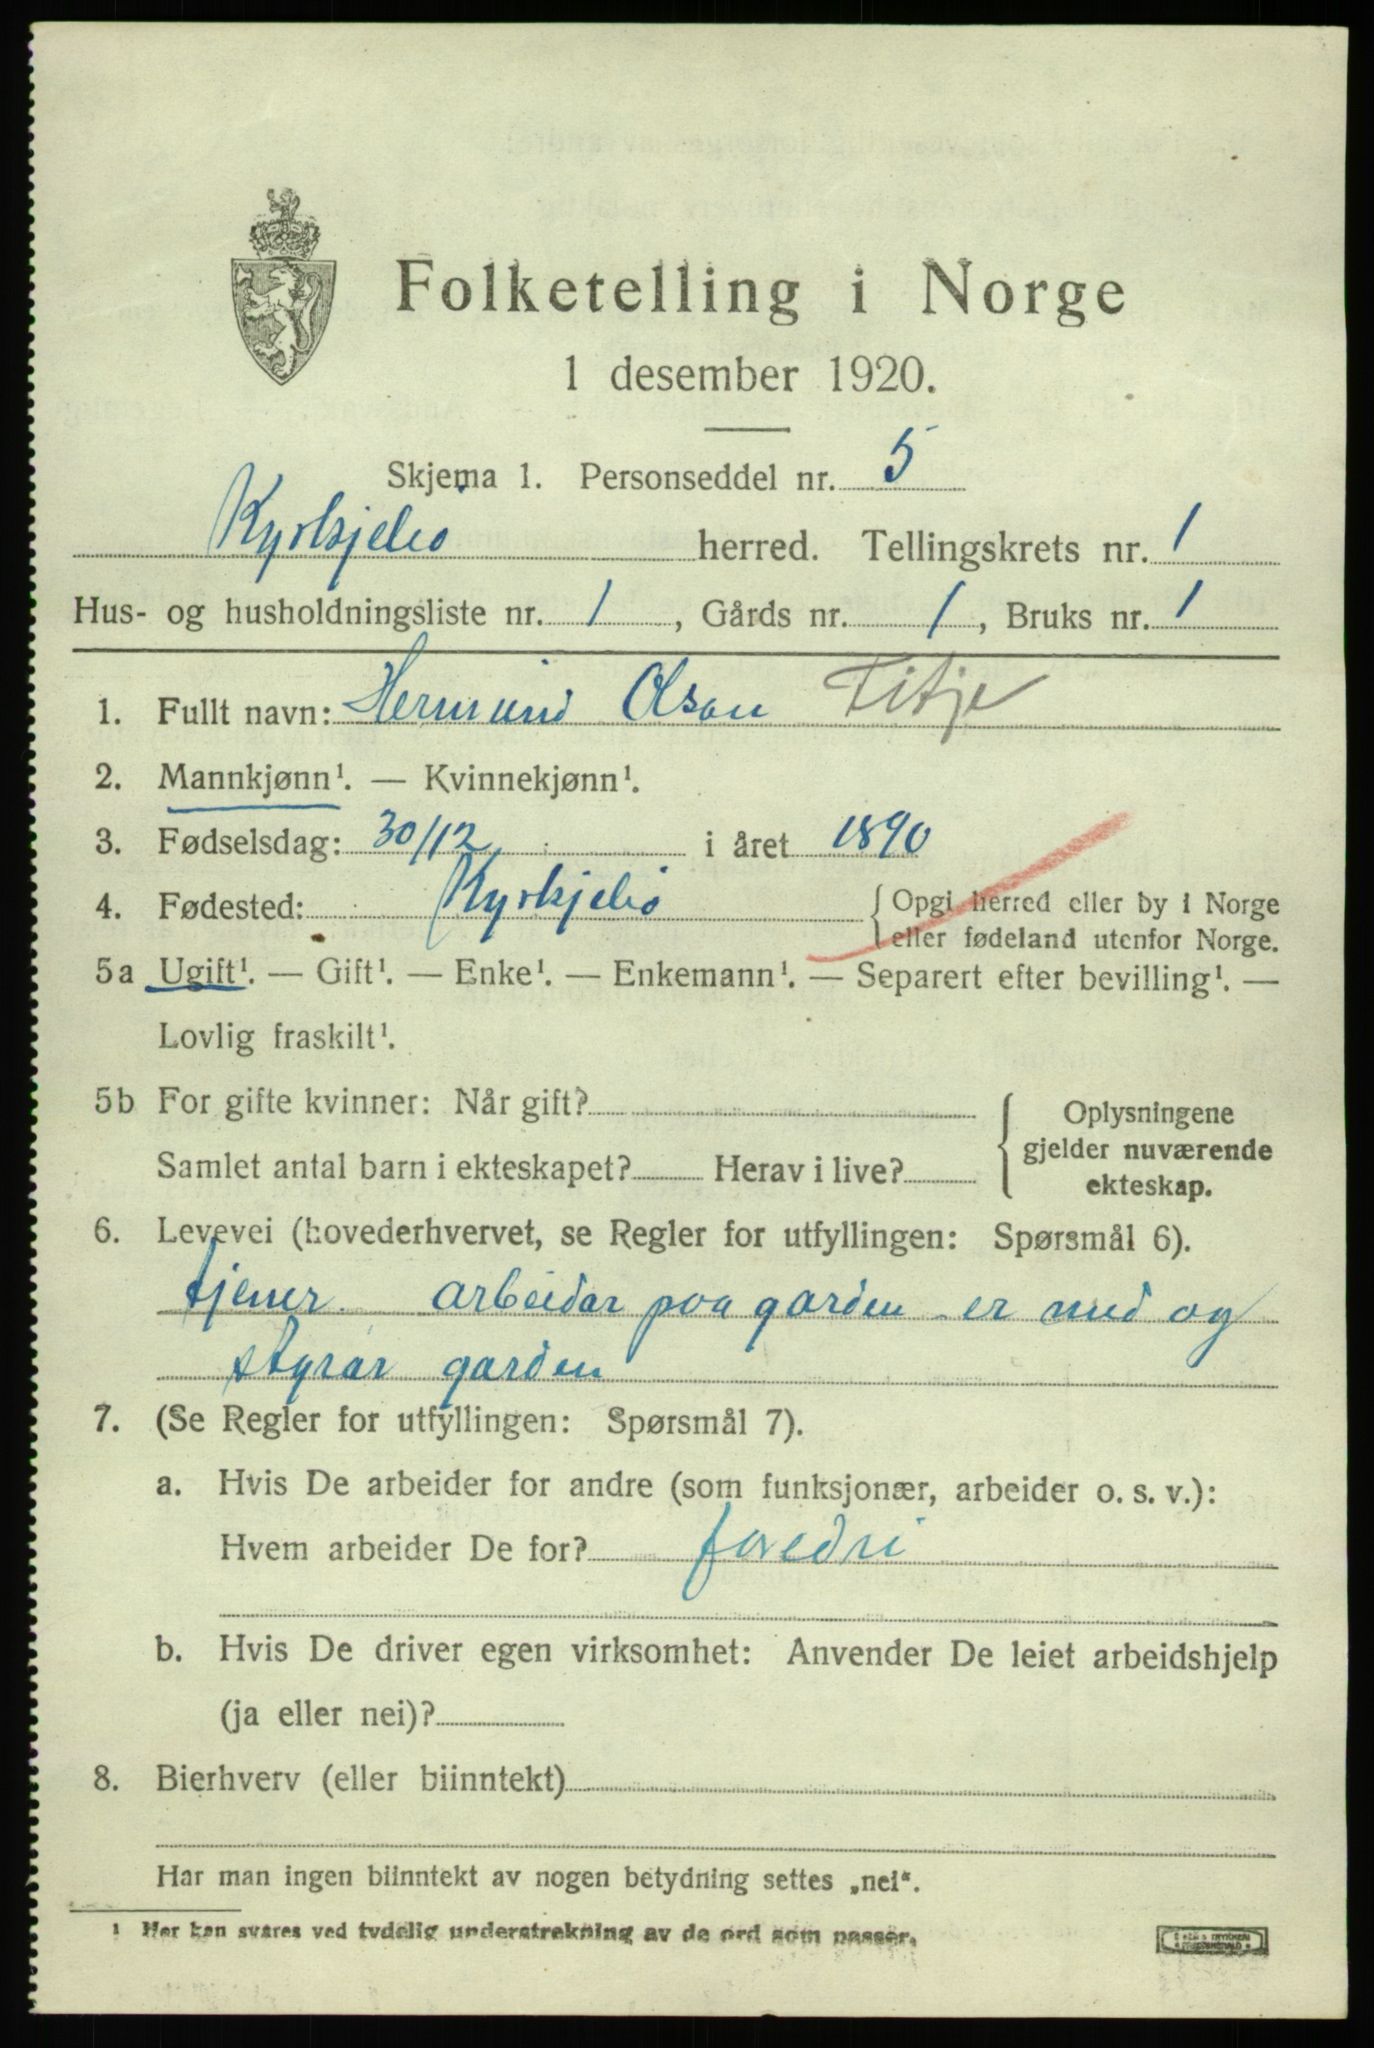 Folketelling i Norge
1 desember 1920.
Skjema 1. Personseddel nr. 5
Kyrkjebø herred. Tellingskrets nr. 1
Hus- og husholdningsliste nr. 1, Gårds nr. 1, Bruks nr. 1
1. Fullt navn: Hermund Olson Titje
2. Mannkjønn¹. — Kvinnekjønn¹.
3. Fødselsdag: 30/12 i året 1890
4. Fødested: Kyrkjebø { Opgi herred eller by i Norge
eller fødeland utenfor Norge.
5a Ugift¹. — Gift¹. — Enke¹. — Enkemann¹. — Separert efter bevilling¹. —
Lovlig fraskilt¹.
5b For gifte kvinner: Når gift?
Samlet antal barn i ekteskapet? Herav i live?
{ Oplysningene
gjelder nuværende
ekteskap.
6. Levevei (hovederhvervet, se Regler for utfyllingen: Spørsmål 6).
tjener. arbeidar paa garden er med og
styrar garden
7. (Se Regler for utfyllingen: Spørsmål 7).
a. Hvis De arbeider for andre (som funksjonær, arbeider o. s. v.):
Hvem arbeider De for? foredri
b. Hvis De driver egen virksomhet: Anvender De leiet arbeidshjelp
(ja eller nei)?
8. Bierhverv (eller biinntekt)
Har man ingen biinntekt av nogen betydning settes „nei“.
¹ Her kan svares ved tydelig understrekning av de ord som passer.